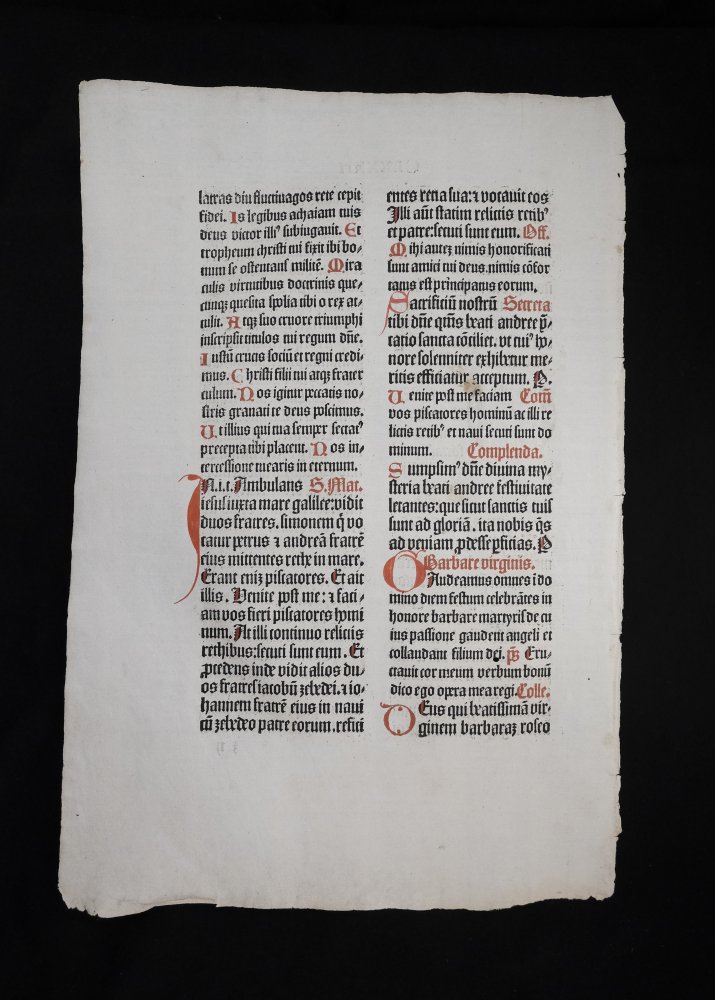 latras diu fluctiuagos rete cepit
fidei. Is legibus achaiam tuis
deus victor illiꝰ subiugauit. Et
tropheum christi tui fixit ibi bo⸗
num se ostentans militē. Mira
culis virtutibus doctrinis que⸗
cunqꝫ quesita spolia tibi o rex at⸗
tulit. Atqꝫ suo cruore triumphi
inscripsit titulos tui regum dūe.
Iustū crucis sociū et regni credi⸗
mus. Christi filii tui atqꝫ frater
culum. Nos igitur peccatis no⸗
stris granati te deus poscimus.
Ut illius qui tua semper sectatꝰ
precepta tibi placent. Nos in⸗
tercessione tuearis in eternum.
In.i.t. Ambulans S. Mat.
iesus iuxta mare galilee: vidit
duos fratres. simonem q̄ vo
catur petrus ⁊ andreā fratrē
eius mittentes rethe in mare.
Erant enīꝫ piscatores. Et ait
illis. Venite post me: ⁊ faci⸗
am vos fieri piscatores homi
num. At illi continuo relictis
rethibus: secuti sunt eum. Et
ꝓcedens inde vidit alios du⸗
os fratres iacobū zebedei. ⁊ io⸗
hannem fratrē eius in naui
cū zebedeo patre eorum. refici
entes retia sua: ⁊ vocauit eos
Illi aūt statim relictis retibꝰ
et patre: secuti sunt eum. Off.
Mihi auteꝫ nimis honorificati
sunt amici tui deus. nimis cōfor
tatus est principatus eorum.
Sacrificiū nostrū Secreta
tibi dūe qūs beati andree p̄⸗
catio sancta cōciliet. vt cuiꝰ ho⸗
nore solenniter exhibetur me⸗
ritis efficiatur acceptum. P.
Uenite post me faciam Com̄
vos piscatores hominū ac illi re
lictis retibꝰ et naui secuti sunt do
minum. Complenda.
Sumpsimꝰ dūe diuina my⸗
steria beati andree festiuitate
letantes: que sicut sanctis tuis
sunt ad gloriā. ita nobis q̄s
ad veniam ꝓdesse ꝑficias. P
Barbare virginis.
Gaudeamus omnes i do
mino diem festum celebrātes in
honore barbare martyris de cu
ius passione gaudent angeli et
collaudant filium dei. ps̄ Eru⸗
ctauit cor meum verbum bonū
dico ego opera mea regi. Colle.
Deus qui beatissimā vir⸗
ginem barbaraꝫ roseo